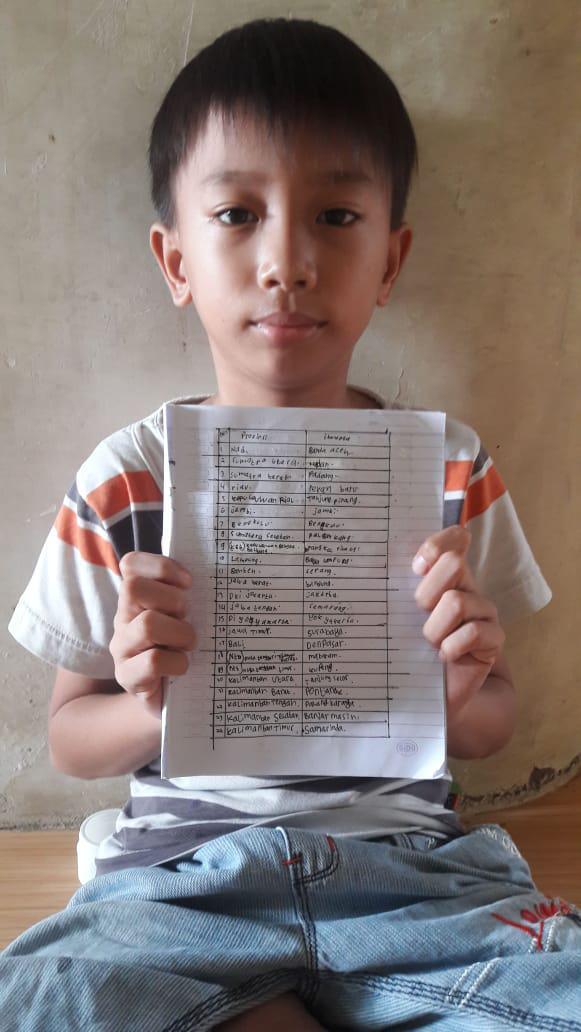 No Provinsi Ibukota
1 Nad. Banda aceh.
2 Sumatra Utara. medan.
3 Sumatra barat. Padang.
4 riau. Pekan baru
5 Kepulauan Riau. Tanjung pinang.
6 jambi. jambi.
7 Bengkulu. Bengkulu.
8 Sumatera selatan. palembang.
9 pangkal pinang.
10 Lampung. Bandar Lampung.
11 Banten. serang.
12 Jawa barat. bandung.
13 Dki jakarta. jakarta.
14 jawa tengah. semarang.
15 Di yogyakarta. Yogyakarta.
16 jawa Timur. surabaya.
17 Bali. Denpasar.
18 Ntb mataram.
19 Ntt nusa tenggara timur. kupang.
20 Kalimantan Utara Tanjung selor.
21 Kalimantan Barat. Pontianak.
22 Kalimantan Tengah. Palangkaraya.
23 Kalimantan Selatan. Banjarmasin.
24 Kalimantan Timur. Samarinda.
SIDU